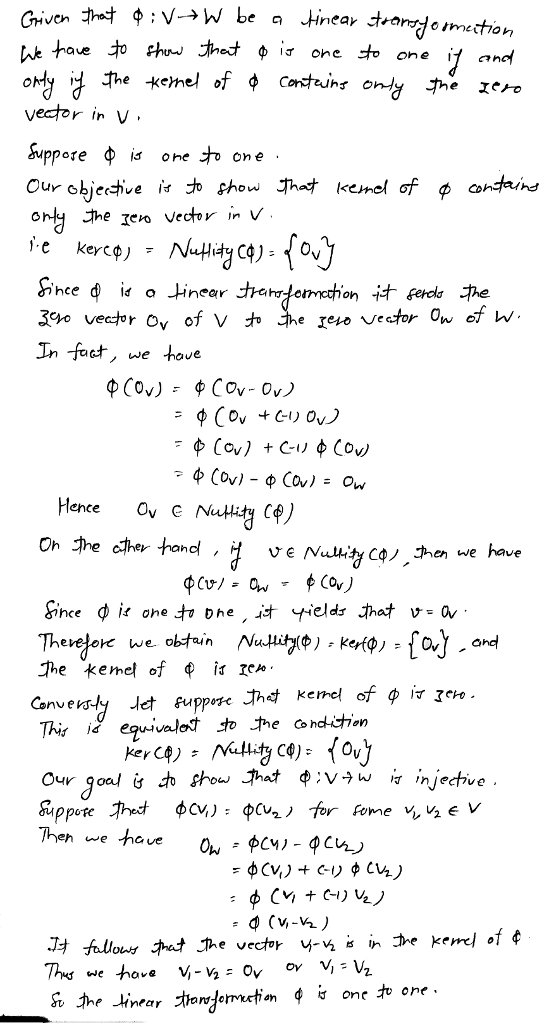 Given that φ : V→W be a linear transformation
We have to show that φ is one to one if and
only if the kernel of φ contains only the zero
vector in V.
Suppose φ is one to one.
Our objective is to show that kernel of φ contains
only the zero vector in V.
i.e ker(φ) = Nullity(φ) = {0v}
Since φ is a linear transformation it sends the
zero vector 0v of V to the zero vector 0w of W.
In fact, we have
φ(0v) = φ(0v - 0v)
= φ(0v + (-1) 0v)
= φ(0v) + (-1) φ(0v)
= φ(0v) - φ(0v) = 0w
Hence 0v ∈ Nullity (φ)
On the other hand, if v ∈ Nullity(φ), then we have
φ(v) = 0w = φ(0v)
Since φ is one to one, it yields that v = 0v.
Therefore we obtain Nullity(φ) = ker(φ) = {0v}, and
the kernel of φ is zero.
Conversly let suppose that kernel of φ is zero.
This is equivalent to the condition
ker(φ) = Nullity(φ) = {0v}
Our goal is to show that φ: V→W is injective.
Suppose that φ(v₁) = φ(v₂) for some v₁, v₂ ∈ V
Then we have 0w = φ(v₁) - φ(v₂)
= φ(v₁) + (-1) φ(v₂)
= φ(v₁ + (-1) v₂)
= φ(v₁-v₂)
It follows that the vector v₁-v₂ is in the kernel of φ.
Thus we have v₁-v₂ = 0v or v₁ = v₂
So the linear transformation φ is one to one.